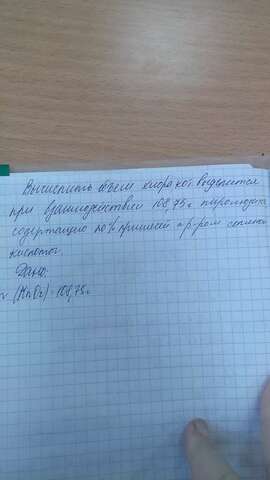 Вычислить объем хлора кот. выделится
при взаимодействии 108,75 г пиролюзита
содержащего 20% примесей с р-ром соляной
кислотой.
Дано:
(MnO2) = 108,75 г